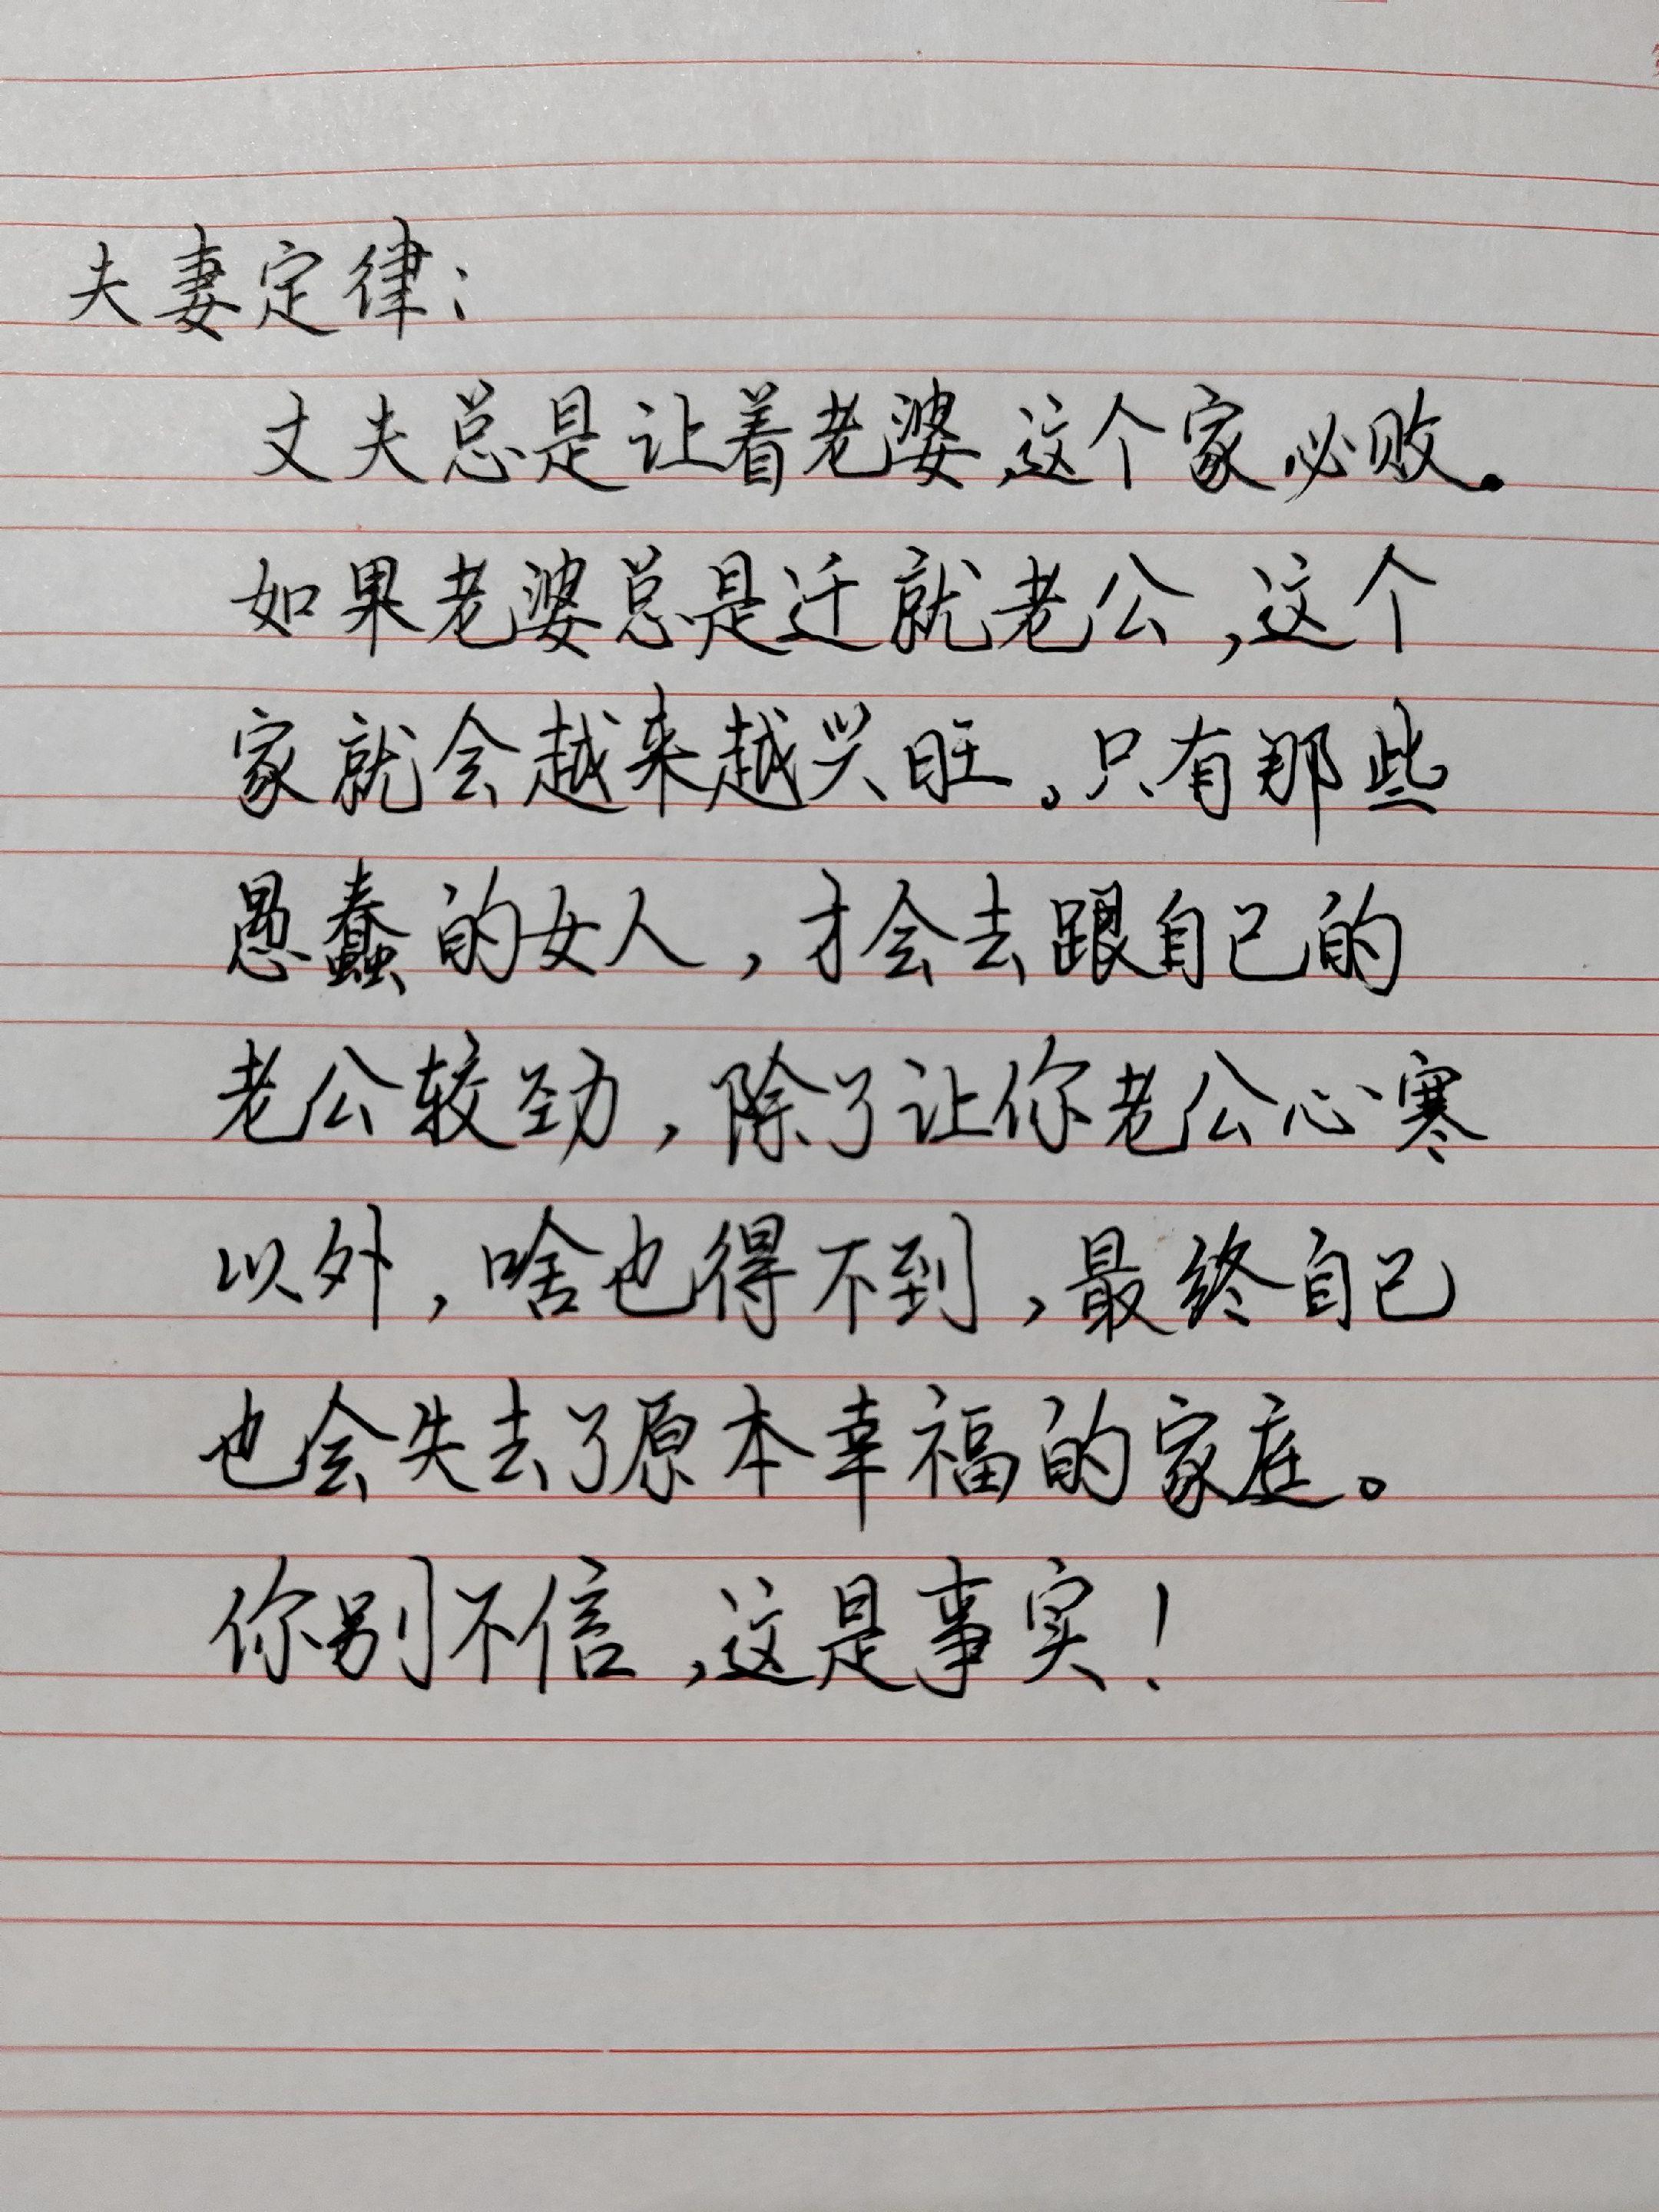 夫妻定律：
丈夫总是让着老婆,这个家必败。
如果老婆总是迁就老公,这个
家就会越来越兴旺。只有那些
愚蠢的女人,才会去跟自己的
老公较劲,除了让你老公心寒
以外,啥也得不到,最终自己
也会失去了原本幸福的家庭。
你别不信,这是事实!